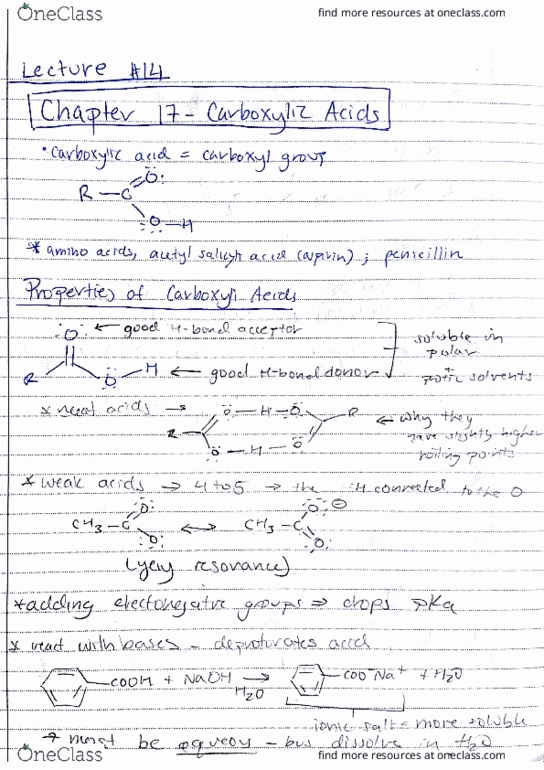 OneClass
find more resources at oneclass.com
Lecture #14
Chapter 17 - Carboxylic Acids
• carboxylic acid = carboxyl group
R - C
:O:
O - H
* amino acids, acetyl salicylic acid (aspirin) ; penicillin
Properties of Carboxyli Acids
:O: ← good H-bond acceptor
R O H ← good H-bond donor
soluble in
polar
+
protic solvents
* neat acids →
O - H - O R
R O - H - O
← why they
have slightly higher
boiling points
* weak acids → 4 to 5 → the H connected to the O
CH3 - C O: O: ↔ CH3 - C O: ⊖ O:
(yey resonance)
* adding electronegative groups ⇒ drops pKa
* react with bases - deprotonates acid
COOH + NaOH → H2O COO⁻Na⁺ + H2O
ionic salt = more soluble
→ must be aqueous - bus dissolve in H2O
OneClass
find more resources at oneclass.com